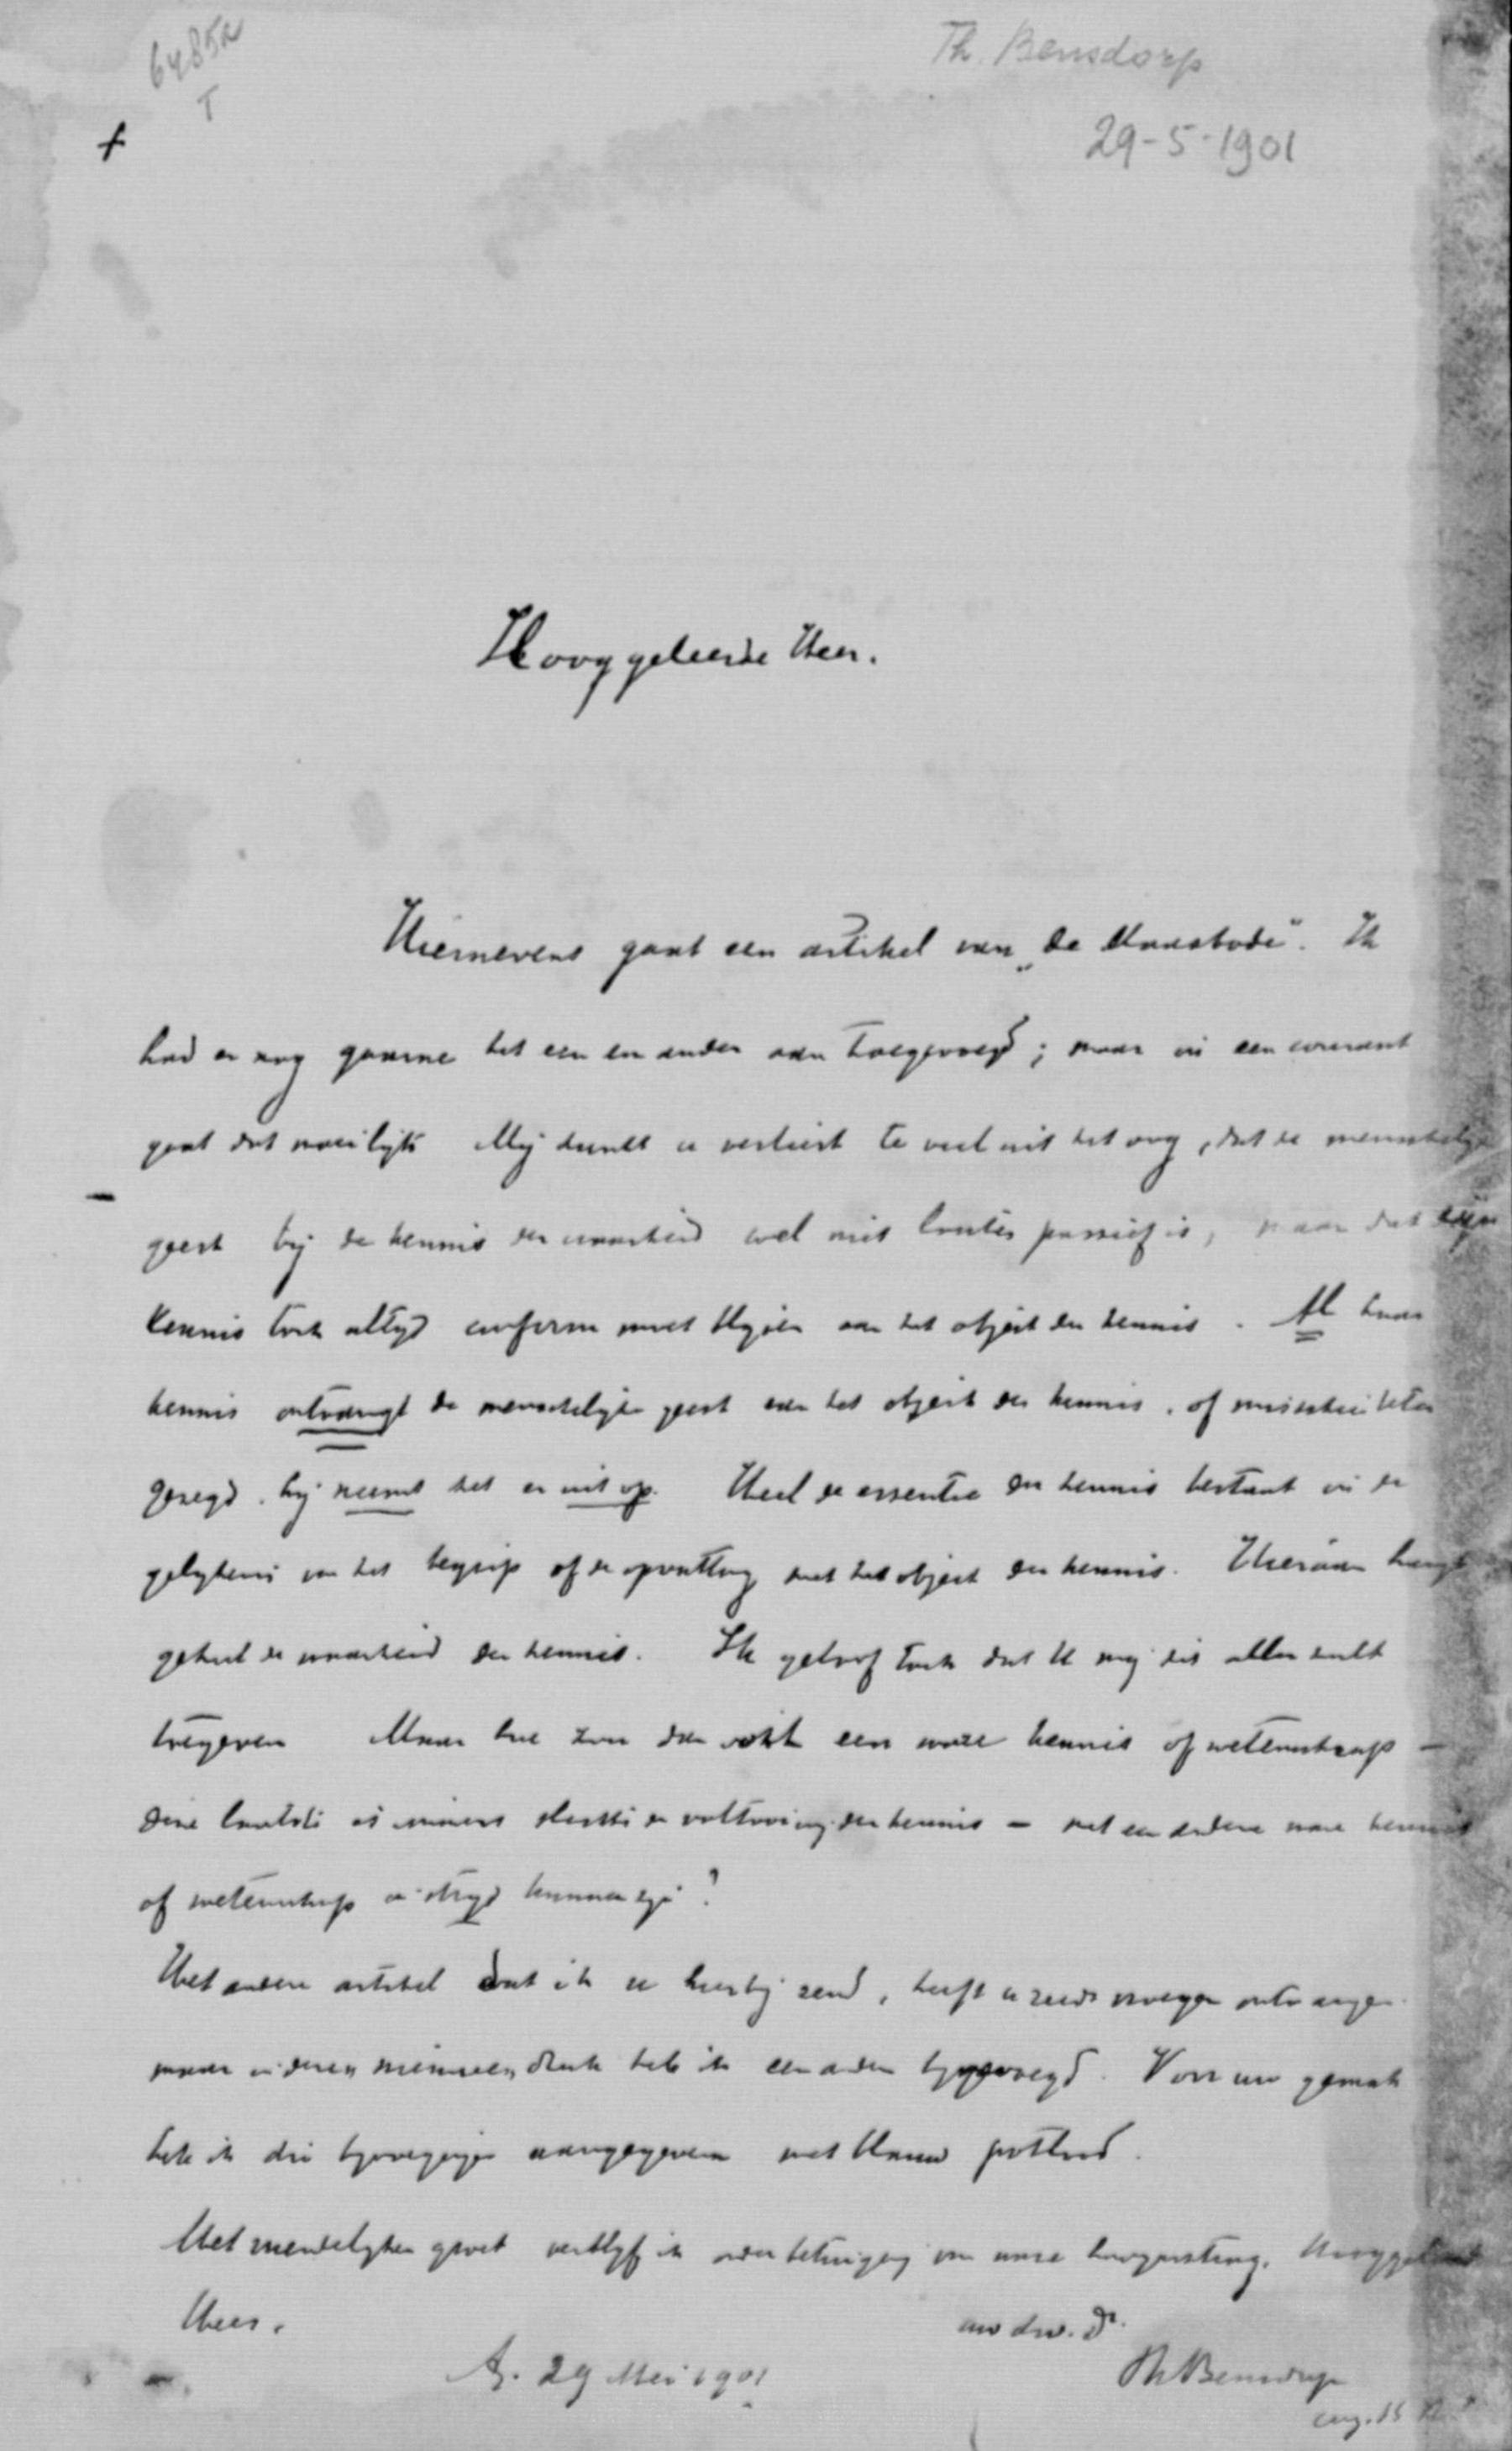 6485a
T
Th. Bensdorp
29-5-1901
Hooggeleerde Heer.
Hiernevens gaat een artikel van „De Maasbode". Ik
had er nog gaarne het een en ander aan toegevoegd; maar in een courant
gaat dat moeilijk. Mij dunkt u verliest te veel uit het oog, dat de menschelijke
geest bij de kennis der waarheid wel niet louter passief is, maar dat zijn
kennis toch altijd conform moet blijven aan het object der kennis. Al haar
kennis ontvangt de menschelijke geest van het object der kennis, of
gezegd, hij neemt het er uit op. Heel de essentie der kennis bestaat in de
gelijkenis van het begrip of de opvatting met het object der kennis. Hieraan hangt
geheel de waarheid der kennis. Ik geloof toch dat U mij dit alles zult
toegeven. Maar hoe zou dan ooit een ware kennis of wetenschap —
deze laatste is immers slechts de voltooiing der kennis — met een andere ware kennis
of wetenschap in strijd kunnen zijn?
Het andere artikel dat ik u hierbij zend, heeft u reeds vroeger ontvangen.
maar in dezen nieuwen druk heb ik een en ander bijgevoegd. Voor uw gemak
heb ik die bijvoegingen aangegeven met blauw potlood.
Met gevoel verblijf ik onder betuiging van ware hoogachting, Hooggeleerde
Heer,
uw dw. Dr.
A. 29 Mei 1901
Th Bensdorp